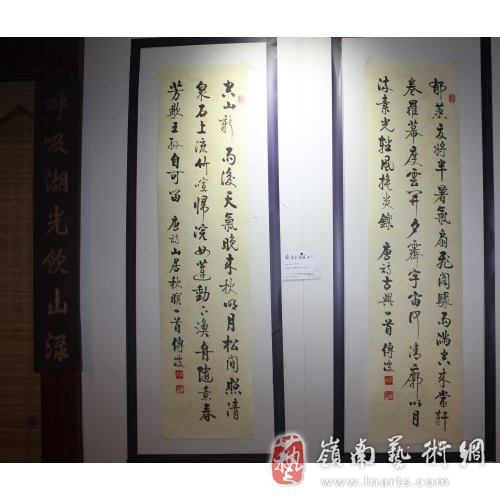 郁蒸夏將半暑氣扇飛閣驟雨滿空來當軒
卷羅幕度雲開夕霽宇宙何清廓明月
流素光轻風換炎鑠 唐詩古興一首傅波
空山新雨後天氣晚來秋明月松間照清
泉石上流竹喧歸浣女蓮動下漁舟隨意春
芳歇王孫自可留 唐詩山居秋暝一首傅波
呼吸湖光飲山渌
藝
嶺南藝術網
www.lnarts.com